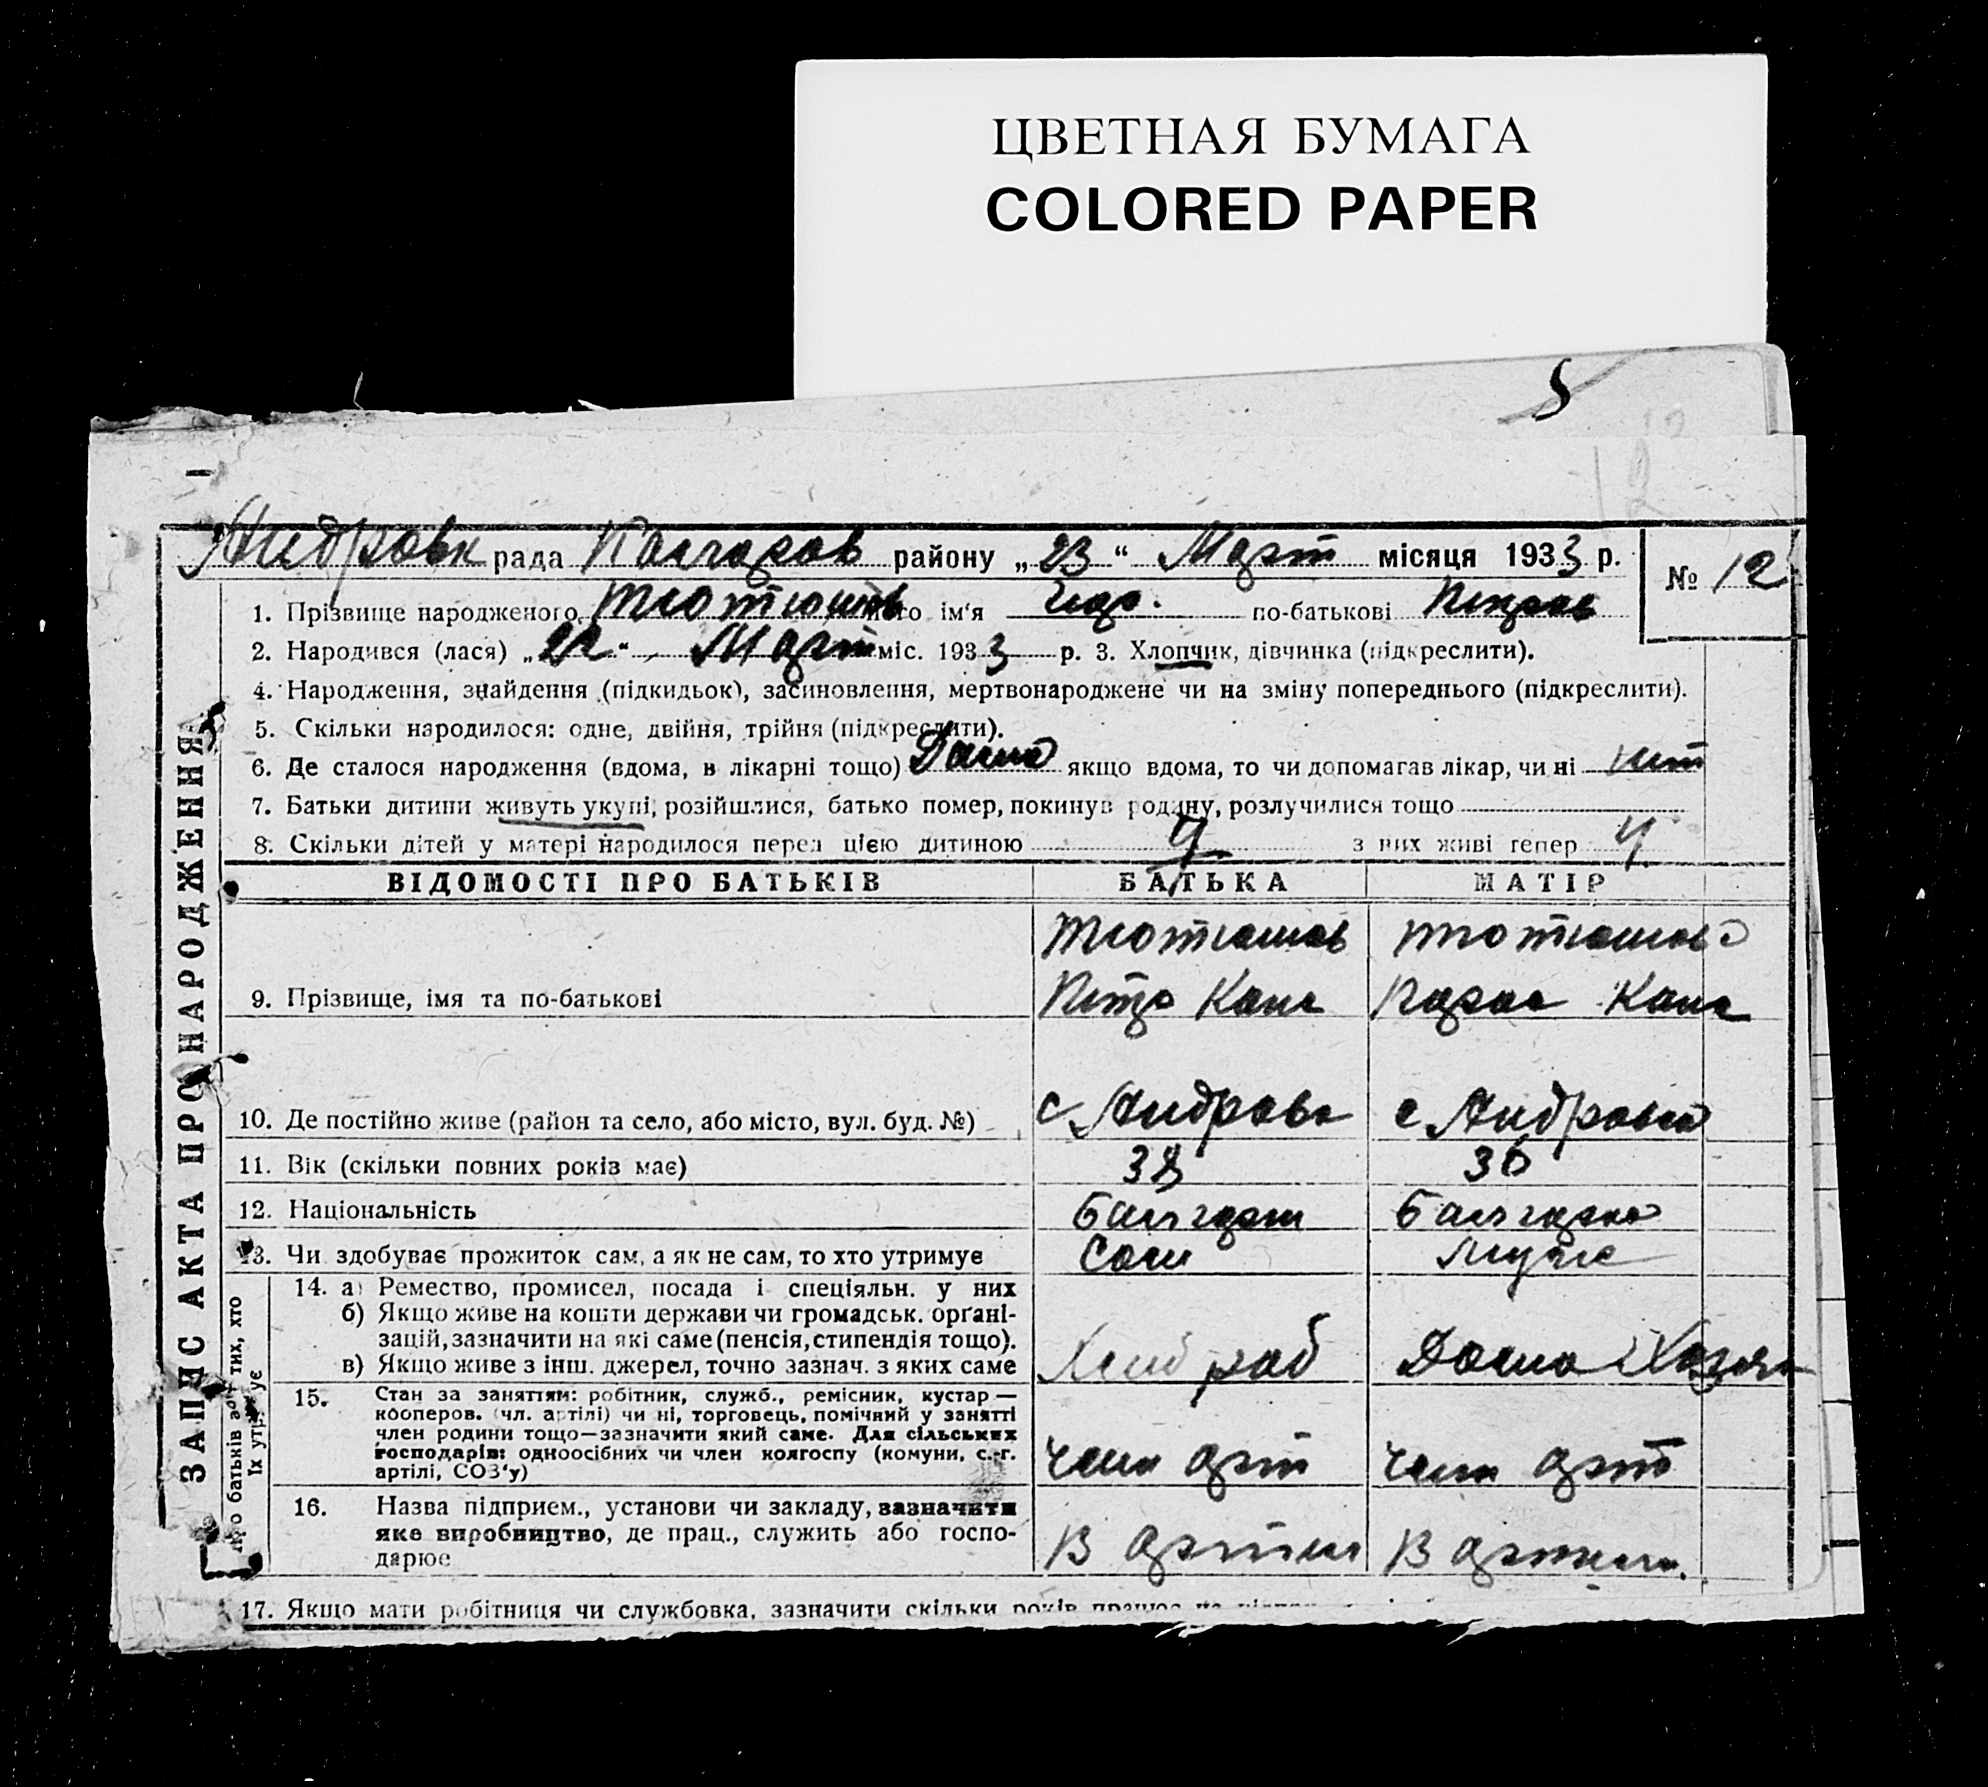 ЦВЕТНАЯ БУМАГА
COLORED PAPER
5
12
Андровк рада Колларов району „23“ Март місяця 1933 р. № 12
1. Прізвище народженого Тютюнов його ім'я по-батькові Петров
2. Народився (лася) „22“ Март міс. 1933 р. 3. Хлопчик, дівчинка (підкреслити).
4. Народження, знайдення (підкидьок), засиновлення, мертвонароджене чи на зміну попереднього (підкреслити).
5. Скільки народилося: одне, двійня, трійня (підкреслити).
6. Де сталося народження (вдома, в лікарні тощо) Дома якщо вдома, то чи допомагав лікар, чи ні нет
7. Батьки дитини живуть укупі, розійшлися, батько помер, покинув родину, розлучилися тощо
8. Скільки дітей у матері народилося перед цією дитиною 4 з них живі тепер 4
ЗАПИС АКТА ПРО НАРОДЖЕННЯ
ВІДОМОСТІ ПРО БАТЬКІВ БАТЬКА МАТІР
Тютюнов Тютюнова
9. Прізвище, імя та по-батькові Петро
10. Де постійно живе (район та село, або місто, вул. буд. №) с Андровк с Андровка
11. Вік (скільки повних років має) 38 36
12. Національність Балгарин Балгарка
13. Чи здобуває прожиток сам, а як не сам, то хто утримує Сам Муже
Про батьків або тих, хто їх утримує
14. а) Ремество, промисел, посада і спеціяльн. у них
б) Якщо живе на кошти держави чи громадськ. орґані-
зацій, зазначити на які саме (пенсія, стипендія тощо).
в) Якщо живе з інш. джерел, точно зазнач. з яких саме Хлеб раб Дома Хозяй
15. Стан за заняттям: робітник, служб., ремісник, кустар—
кооперов. (чл. артілі) чи ні, торговець, помічний у занятті
член родини тощо—зазначити який саме. Для сільських
господарів: одноосібних чи член колгоспу (комуни, с.-г.
артілі, СОЗ'у) член арт член арт
16. Назва підприєм., установи чи закладу, зазначити
яке виробництво, де прац., служить або госпо-
дарює В артели В артели.
17. Якщо мати робітниця чи службовка, зазначити скільки років працює